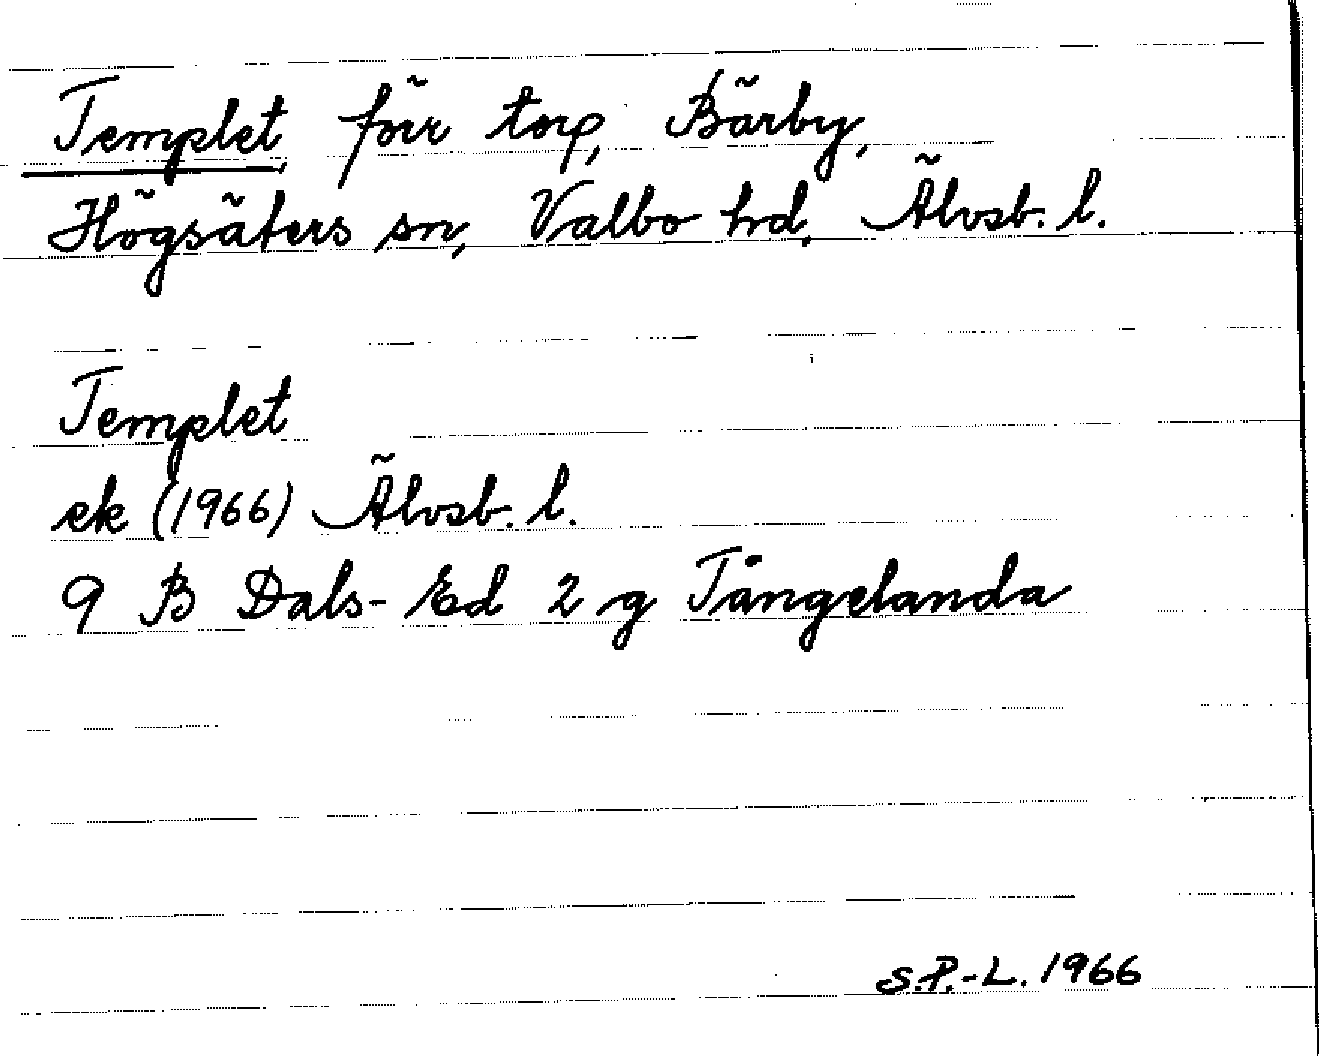 Templet, förr torp, Bärby,
Högsäters sn, Valbo hd, Älvsb. l.
Templet
ek (1966) Älvsb. l.
9 B Dals-Ed 2 g Tångelanda
S.P.-L. 1966